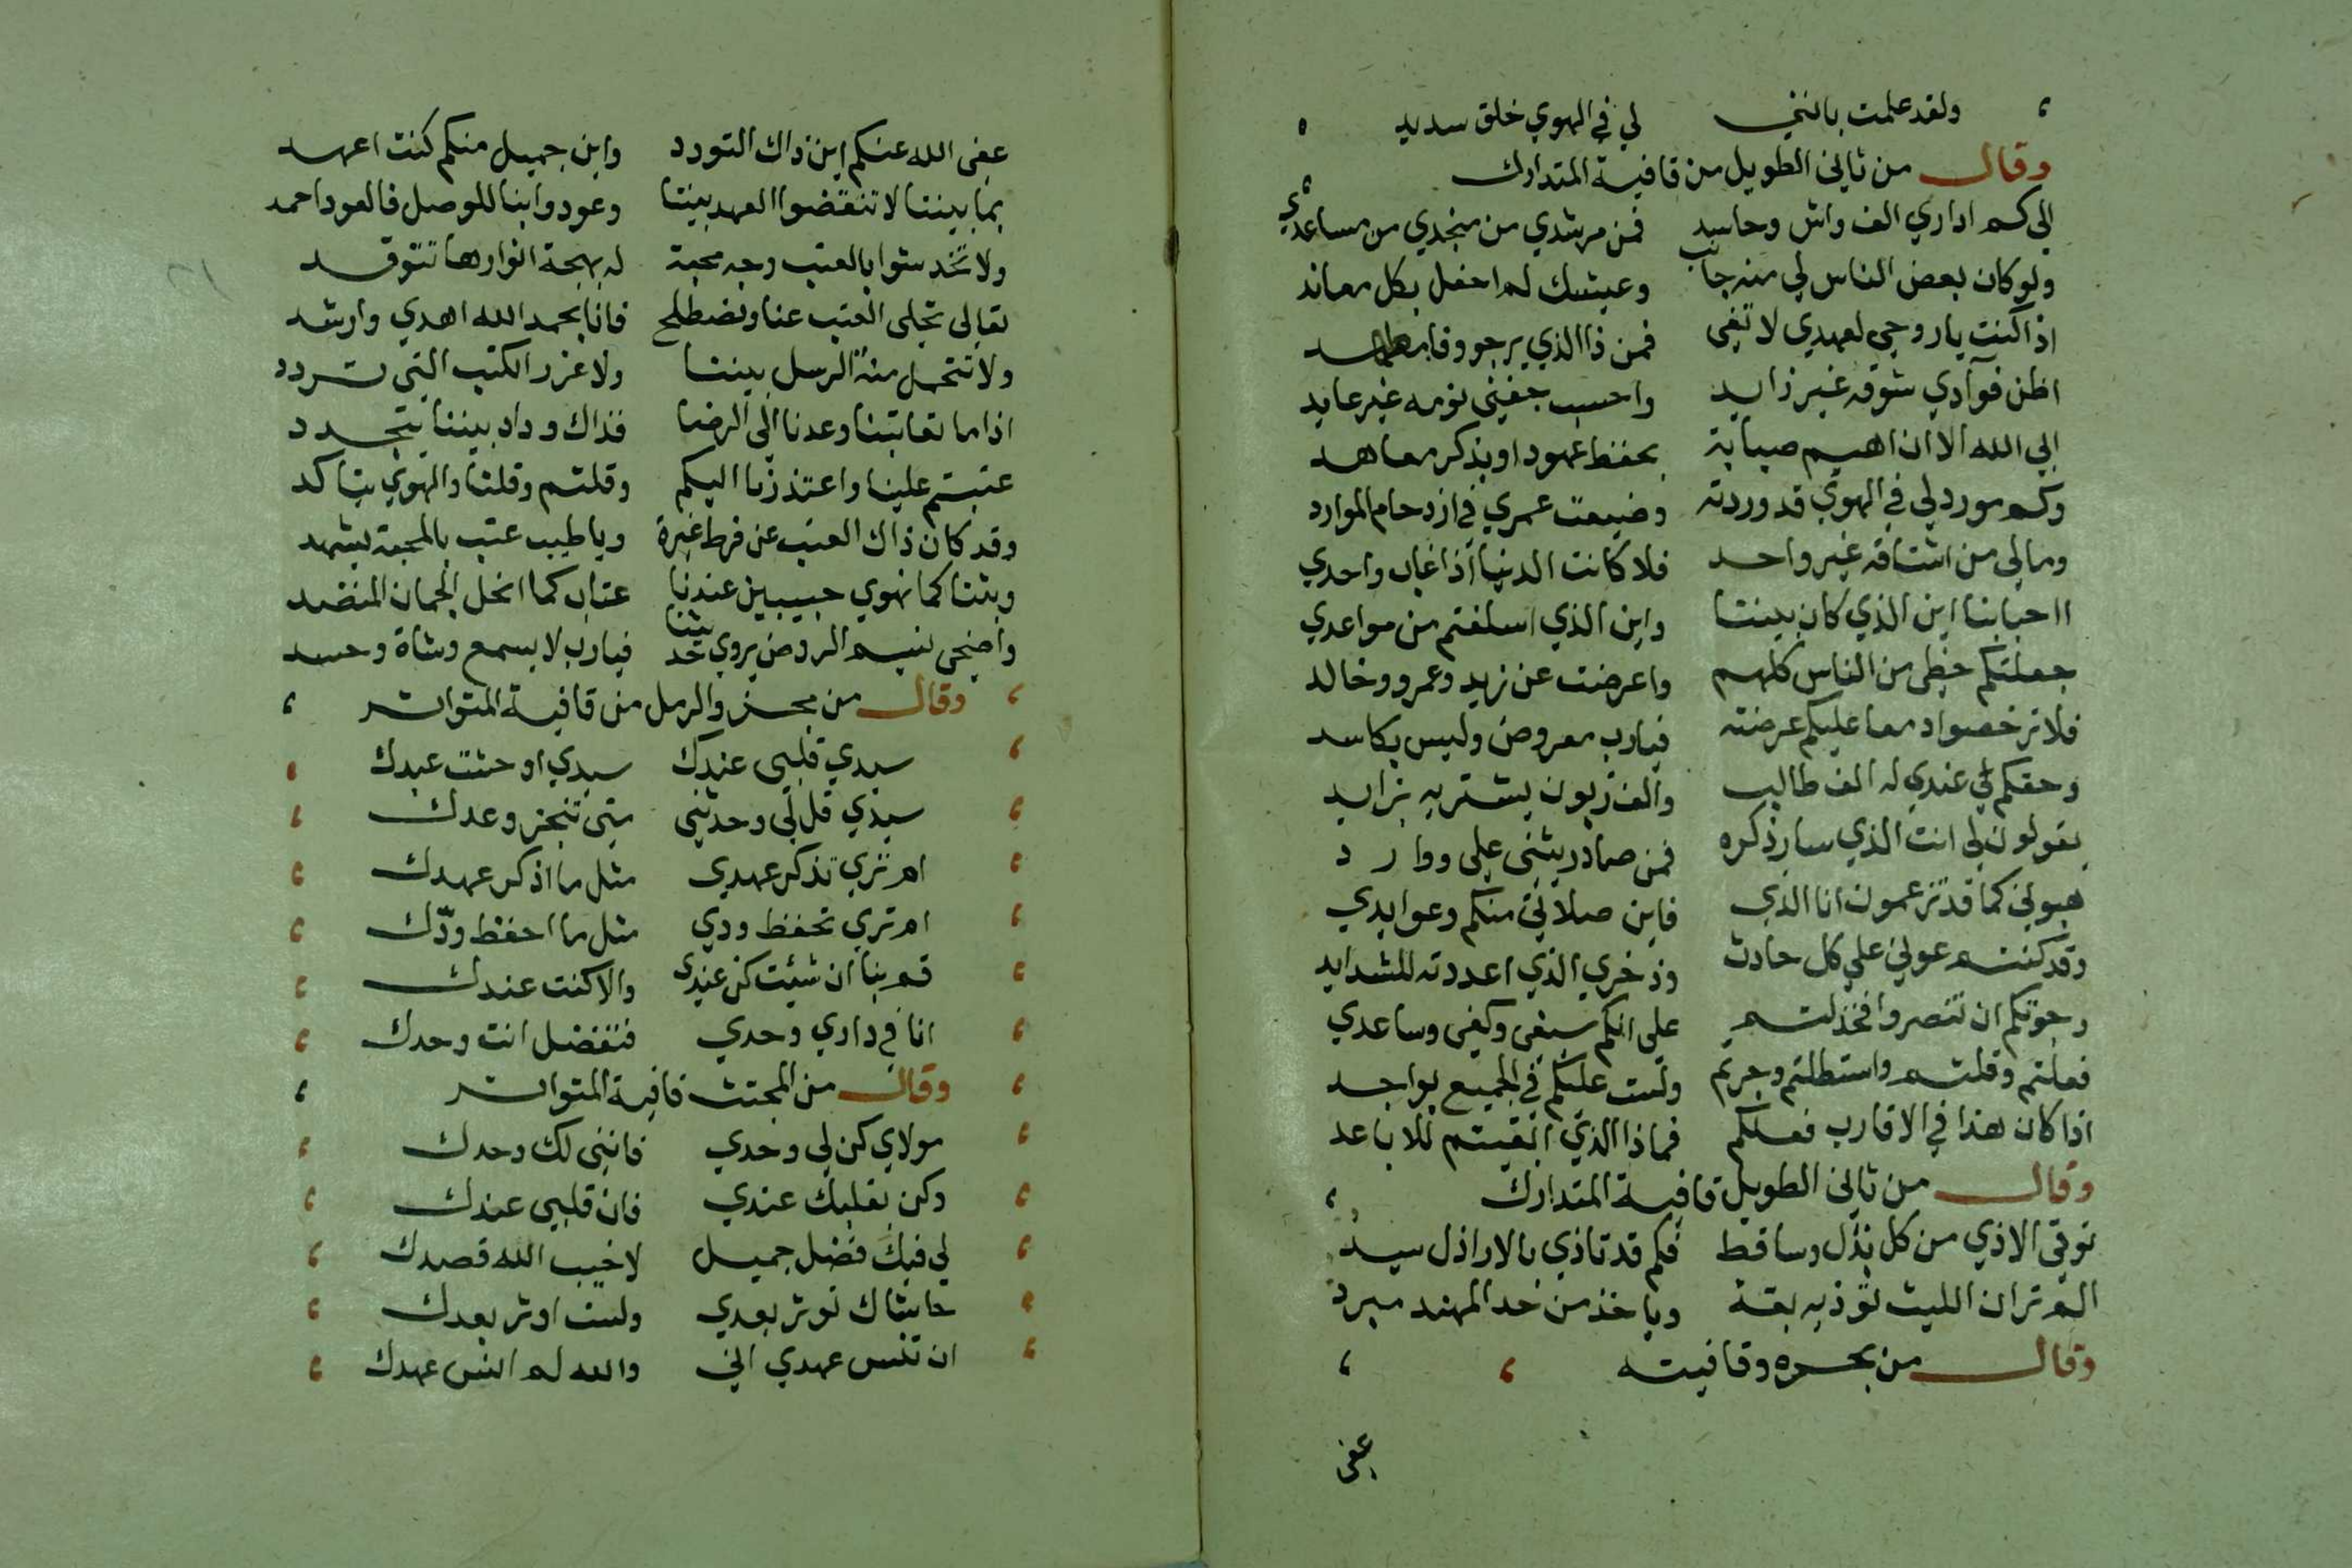 ولقد علمت بانني لي في الهوي خلق سديد
وقال من ثاني الطويل من قافية المتدارك
الي كم اداري الف واش وحاسد فمن مرشدي من منجدي من مساعدي
ولو كان بعض الناس لي منه جانب وعيشك لم احفل بكل معاند
اذا كنت يا روحي لعهدي لا تفي فمن ذا الذي يرجو وفا معاهد
اظن فوآدي شوقه غير زايد واحسب جفني نومه غير عايد
ابي الله الا ان اهيم صبابة بحفظ عهود او بذكر معاهد
وكم مورد لي في الهوي قد وردته وضيعت عمري في ازدحام الموارد
ومالي من اشتاقه غير واحد فلا كانت الدنيا اذا غاب واحدي
ااحبابنا اين الذي كان بيننا واين الذي اسلفتم من مواعدي
جعلتكم حظي من الناس كلهم واعرضت عن زيد وعمرو وخالد
فلا ترخصوا دمعا عليكم عرضته فيارب معروض وليس بكاسد
وحقكم لي عندي له الف طالب والف زبون يشتريه بزايد
يقولون لي انت الذي سار ذكره فمن صادر يثني علي ووارد
هبوني كما قد تزعمون انا الذي فاين صلاتي منكم وعوايدي
وقد كنتم عوني علي كل حادث وذخري الذي اعددته للشدايد
رجوتكم ان تنصروا فخذلتم علي انكم سيفي وكفي وساعدي
فعلتم وقلتم واستطلتم وجرتم ولست عليكم في الجميع بواجد
اذا كان هذا في الاقارب فعلكم فماذا الذي ابقيتم للاباعد
وقال من ثاني الطويل قافية المتدارك
توقي الاذي من كل نذل وساقط فكم قد تاذي بالاراذل سيد
الم تر ان الليث توذيه بقة وياخذ من حد المهند مبرد
وقال من بحره وقافيته
عفي
عفي الله عنكم اين ذاك التودد واين جميل منكم كنت اعهد
بما بيننا لا تنقضوا العهد بيننا وعودوا بنا للوصل فالعود احمد
ولا تخدشوا بالعتب وجه محبة له بهجة انوارها تتوقد
تعالي نخلي العتب عنا ونصطلح فانا بحمد الله اهدي وارشد
ولا نتحمل منة الرسل بيننا ولا غرر الكتب التي تتردد
اذا ما تعاتبنا وعدنا الي الرضا فذاك وداد بيننا يتجدد
عتبتم علينا واعتذرنا اليكم وقلتم وقلنا والهوي يتاكد
وقد كان ذاك العتب عن فرط غيرة ويا طيب عتب بالمحبة يشهد
وبتنا كما نهوي حبيبين عندنا عتاب كما انحل الجمان المنضد
واضحي نسيم الروض يروي حديثنا فيارب لا يسمع وشاة وحسد
وقال من مجزو الرمل من قافية المتواتر
سيدي قلبي عندك سيدي اوحشت عبدك
سيدي قل لي وحدثني متي تنجز وعدك
ام تري تذكر عهدي مثل ما اذكر عهدك
ام تري تحفظ ودي مثل ما احفظ ودّك
قم بنا ان شئت كن عندي والا كنت عندك
انا في داري وحدي فتفضل انت وحدك
وقال من المجتث قافية المتواتر
مولاي كن لي وحدي فانني لك وحدك
وكن بقلبك عندي فان قلبي عندك
لي فيك فضل جميل لا خيب الله قصدك
حاشاك توثر بعدي ولست اوثر بعدك
ان تنس عهدي اني والله لم انس عهدك